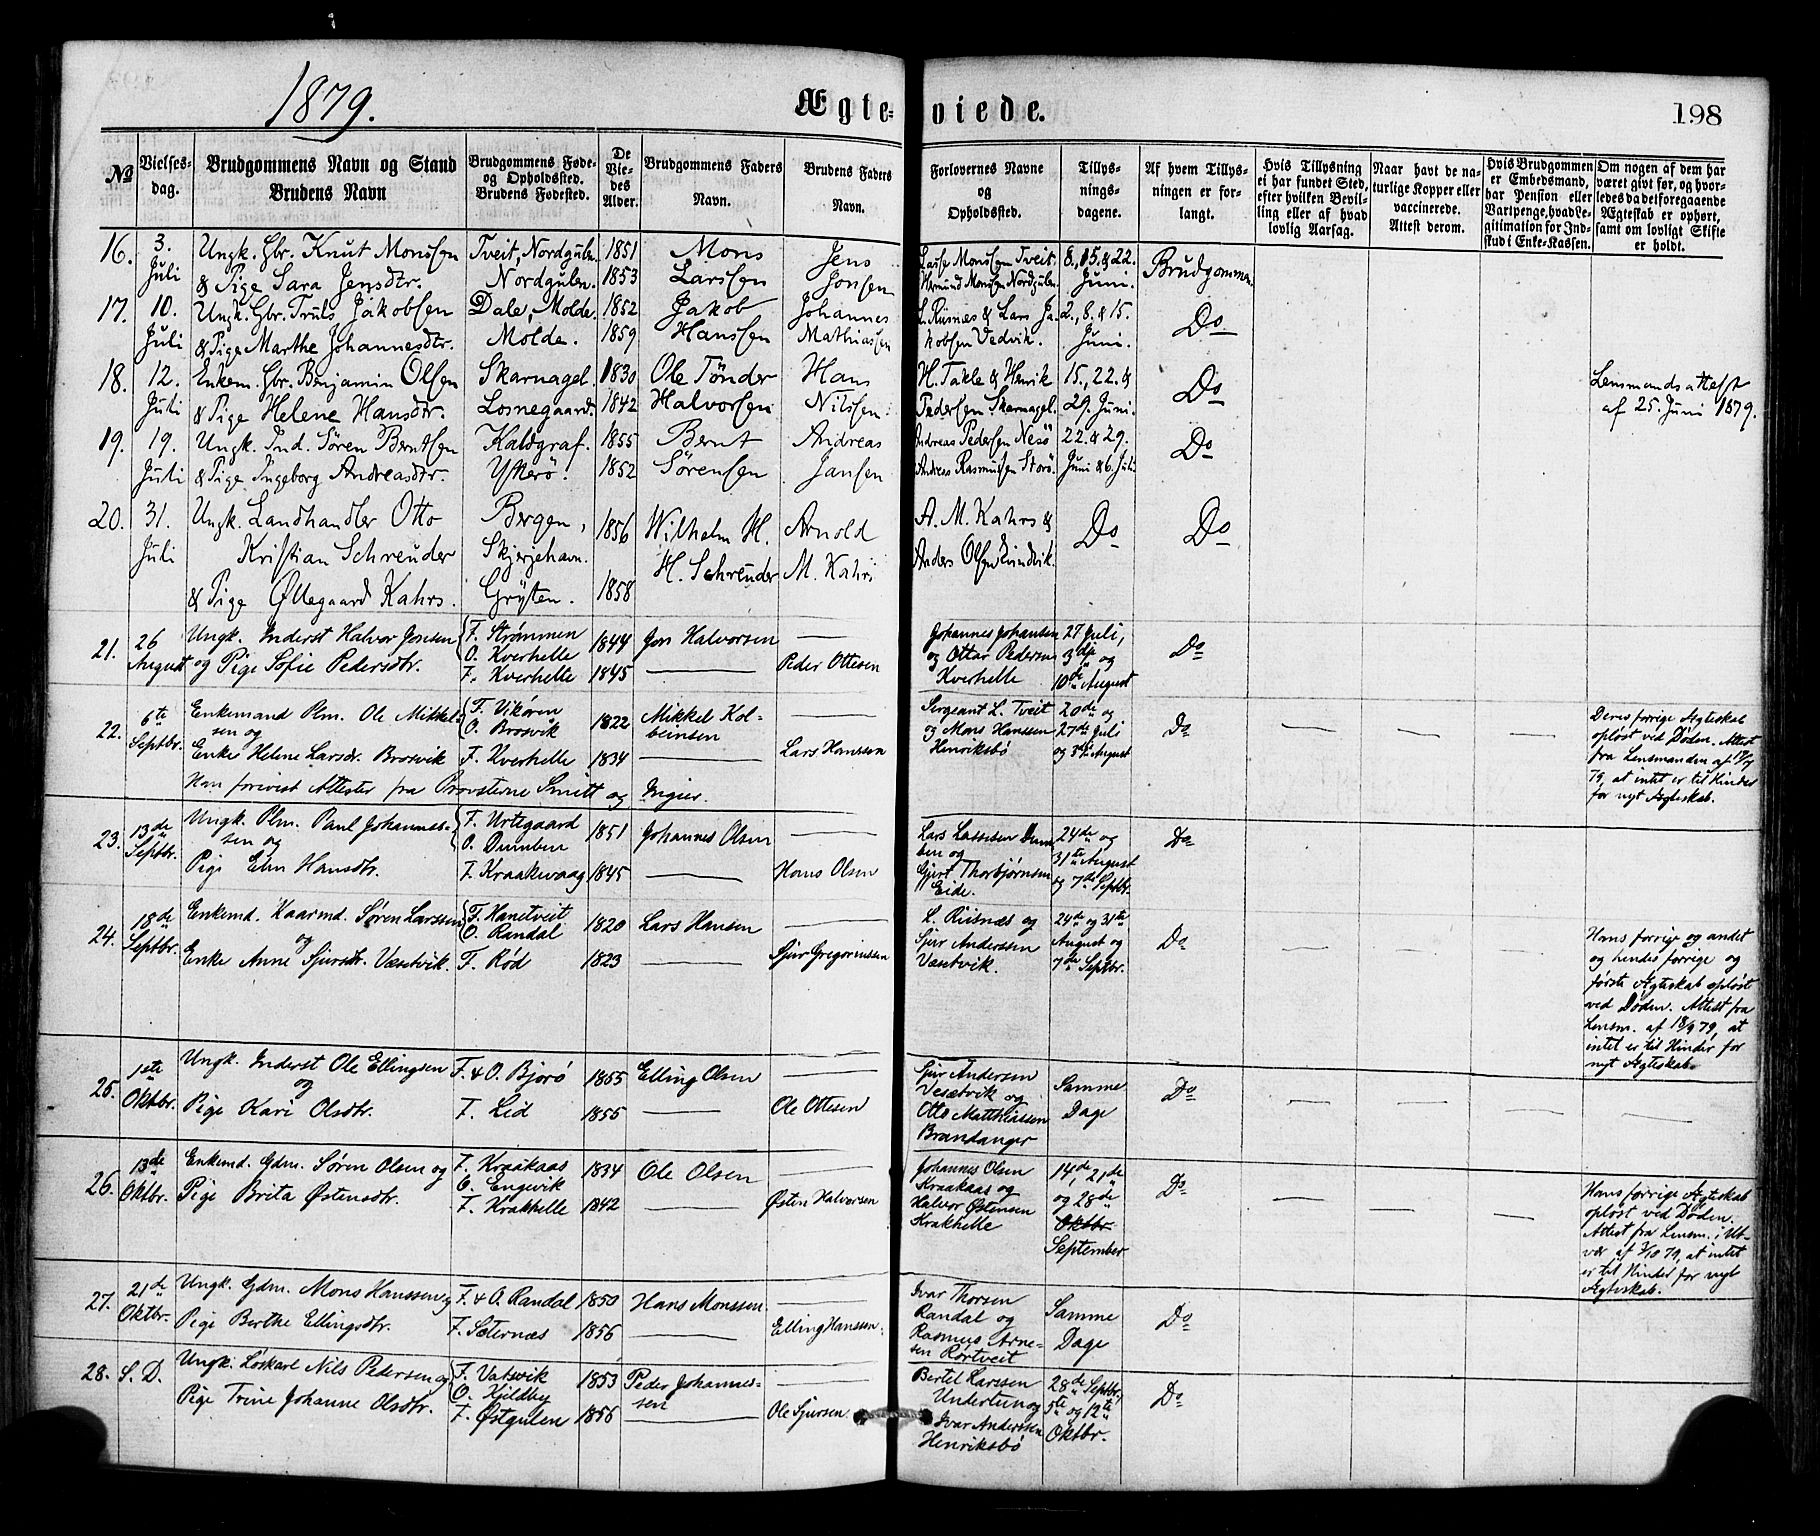 1879.
Ægteviede.
198
No
Vielses-
dag.
Brudgommens Navn og Stand
Brudens Navn
Brudgommens Føde-
og Opholdssted.
Brudens Fødested.
De
Vie-
des
Alder.
Brudgommens Faders
Navn.
Brudens Faders
Navn.
Forlovernes Navne
og
Opholdssted.
Tillys-
nings-
dagene.
Af hvem Tillys-
ningen er for-
langt.
Hvis Tillysning
ei har fundet Sted,
efter hvilken Bevil-
ling eller af hvad
lovlig Aarsag.
Naar havt de na-
turlige Kopper eller
vaccinerede.
Attest derom.
Hvis Brudgommen
er Embedsmand,
har Pension eller
Vartpenge, hvad Le-
gitimation for Ind-
skud i Enke-Kassen.
Om nogen af dem har
været givt før, og hvor-
ledes da det foregaaende
Ægteskab er ophørt,
samt om lovligt Skifte
er holdt.
16.
3.
Juli
Ungk. Gbr. Knut Monssen
& Pige Sara Jensdtr.
Tveit, Nordgulen.
Nordgulen.
1851
1853
Mons
Larssen
Jens
Jonsen
Lasse Monssen Tveit.
Hermund Monssen Nordgulen
8., 15. & 22.
Juni.
Brudgommen
17.
10.
Juli
Ungk. Gbr. Truls Jakobsen
& Pige Marthe Johannesdtr.
Dale, Molde.
Molde.
1852
1859
Jakob
Hanssen
Johannes
Mathiassen
L. Riisnæs & Lars Ja-
kobsen Vedvik.
2., 8. & 15.
Juni.
Do
18.
12.
Juli
Enkem. Gbr. Benjamin Olsen
& Pige Helene Hansdtr.
Skarnagel.
Losnegaard.
1830
1842
Ole Tönder
Halvorsen
Hans
Nilsen
H. Takle & Henrik
Pedersen Skarnagel.
15., 22. &
29. Juni.
Do
Lensmandsattest
af 25. Juni 1879.
19.
19.
Juli
Ungk. Ind. Sören Berntsen
& Pige Ingeborg Andreasdtr.
Kaldgraf.
Ytterö.
1855
1852
Bernt
Sörensen
Andreas
Jansen
Andreas Pedersen Nesö
Andreas Rasmussen Storö.
22. & 29.
Juni & 6. Juli
Do
20.
31.
Juli
Ungk. Landhandler Otto
Kristian Schreuder
& Pige Øllegaard Kahrs.
Bergen,
Skjerjehavn.
Gryten.
1856
1858
Wilhelm H.
H. Schreuder
Arnold
M. Kahrs
A. M. Kahrs &
Anders Olsen Eivindvik.
Do
Do
21.
26
August
Ungk. Inderst Halvor Jonsen
og Pige Sofie Pedersdtr.
F. Strømmen
O. Kverhelle
F. Kverhelle
1844
1845
Jon Halvorsen
Peder Ottesen
Johannes Johansen
og Ottar Pedersen
Kverhelle
27 Juli,
3die og
10de August
Do
22.
6te
Septbr.
Enkemand Plm. Ole Mikkel-
sen og
Enke Helene Larsdr. Brosvik
F. Vikøren
O. Brosvik
F. Kverhelle
1822
1834
Mikkel Kol-
beinsen
Lars Hanssen
Han forevist Attester fra Provsterne Smitt og
Sergeant L. Tveit
og Mons Hanssen
Henriksbø
20de og
27de Juli
og 3die August
Do
Deres forrige Ægteskab
opløst ved Døden. Attest
fra Lensmanden af
79, at intet er til Hinder
for nyt Ægteskab.
23.
13de
Septbr.
Ungk. Plm. Paul Johannes-
sen og
Pige Elen Hansdtr.
F. Urtegaard
O. Dumben
F. Kraakevaag
1851
1845
Johannes Olsen
Hans Olsen
Lars Lassesen Dum-
ben og
Gjert Thorbjørnsen
Eide.
24de og
31te August
og 7de Septbr.
Do
24.
18de
Septbr.
Enkemd. Kaarmd. Søren Larssen
og
Enke Anne Sjursdtr. Væsetvik.
F. Hanetveit
O. Randal
F. Rød
1820
1823
Lars Hansen
Sjur Gregoriussen
L. Riisnæs og
Sjur Anderssen
Væsetvik.
24de og 31te
August og
7de Septbr.
Do
Hans forrige og andet
og hendes forrige og
første Ægteskab opløst
ved Døden. Attest fra
Lensm. af 18/9 79, at
intet er til Hinder for
nyt Ægteskab.
25.
1ste
Oktbr.
Ungk. Inderst Ole Ellingsen
og
Pige Kari Olsdtr.
F. & O. Bjorø
F. Lid
1855
1855
Elling Olsen
Ole Ottesen
Sjur Andersen
Vesetvik og
Otto Matthiassen
Brandanger
Samme
Dage
Do
26.
13de
Oktbr.
Enkemd. Gdm. Søren Olsen og
Pige Brita Østensdtr.
F. Kraakaas
O. Engevik
F. Krakhelle
1834
1842
Ole Olsen
Østen Halvorsen
Johannes Olsen
Kraakaas og
Halvor Østensen
Krakhelle
14de, 21de
og 28de
Oktbr.
September
Do
Hans forrige Ægteskab
opløst ved Døden.
Attest fra Lensm. i Ut-
vær af 3/10 79, at intet
er til Hinder for nyt
Ægteskab.
27.
21de
Oktbr.
Ungk. Gdm. Mons Hanssen og
Pige Berthe Ellingsdtr.
F. & O. Randal
F. Sæternæs
1850
1856
Hans Monssen
Elling Hanssen
Ivar Thorsen
Randal og
Rasmus Arne-
sen Rørtveit
Samme
Dage
Do
28.
S. D.
Ungk. Løskarl Nils Pedersen og
Pige Trine Johanne Olsdtr.
F. Vatsvik
O. Kjeldby
F. Østgulen
1853
1856
Peder Johannes-
sen
Ole Sjursen
Bertel Larssen
Undertun og
Ivar Anderssen
Henriksbø
28de Septbr.
5te og 12te
Oktbr.
Do